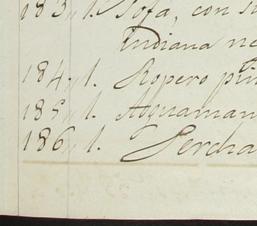 183,, 1. Sofa, con s
Indiana ne
184,, 1. Ropero pin
185,, 1. Aguaman
186,, 1. Percha